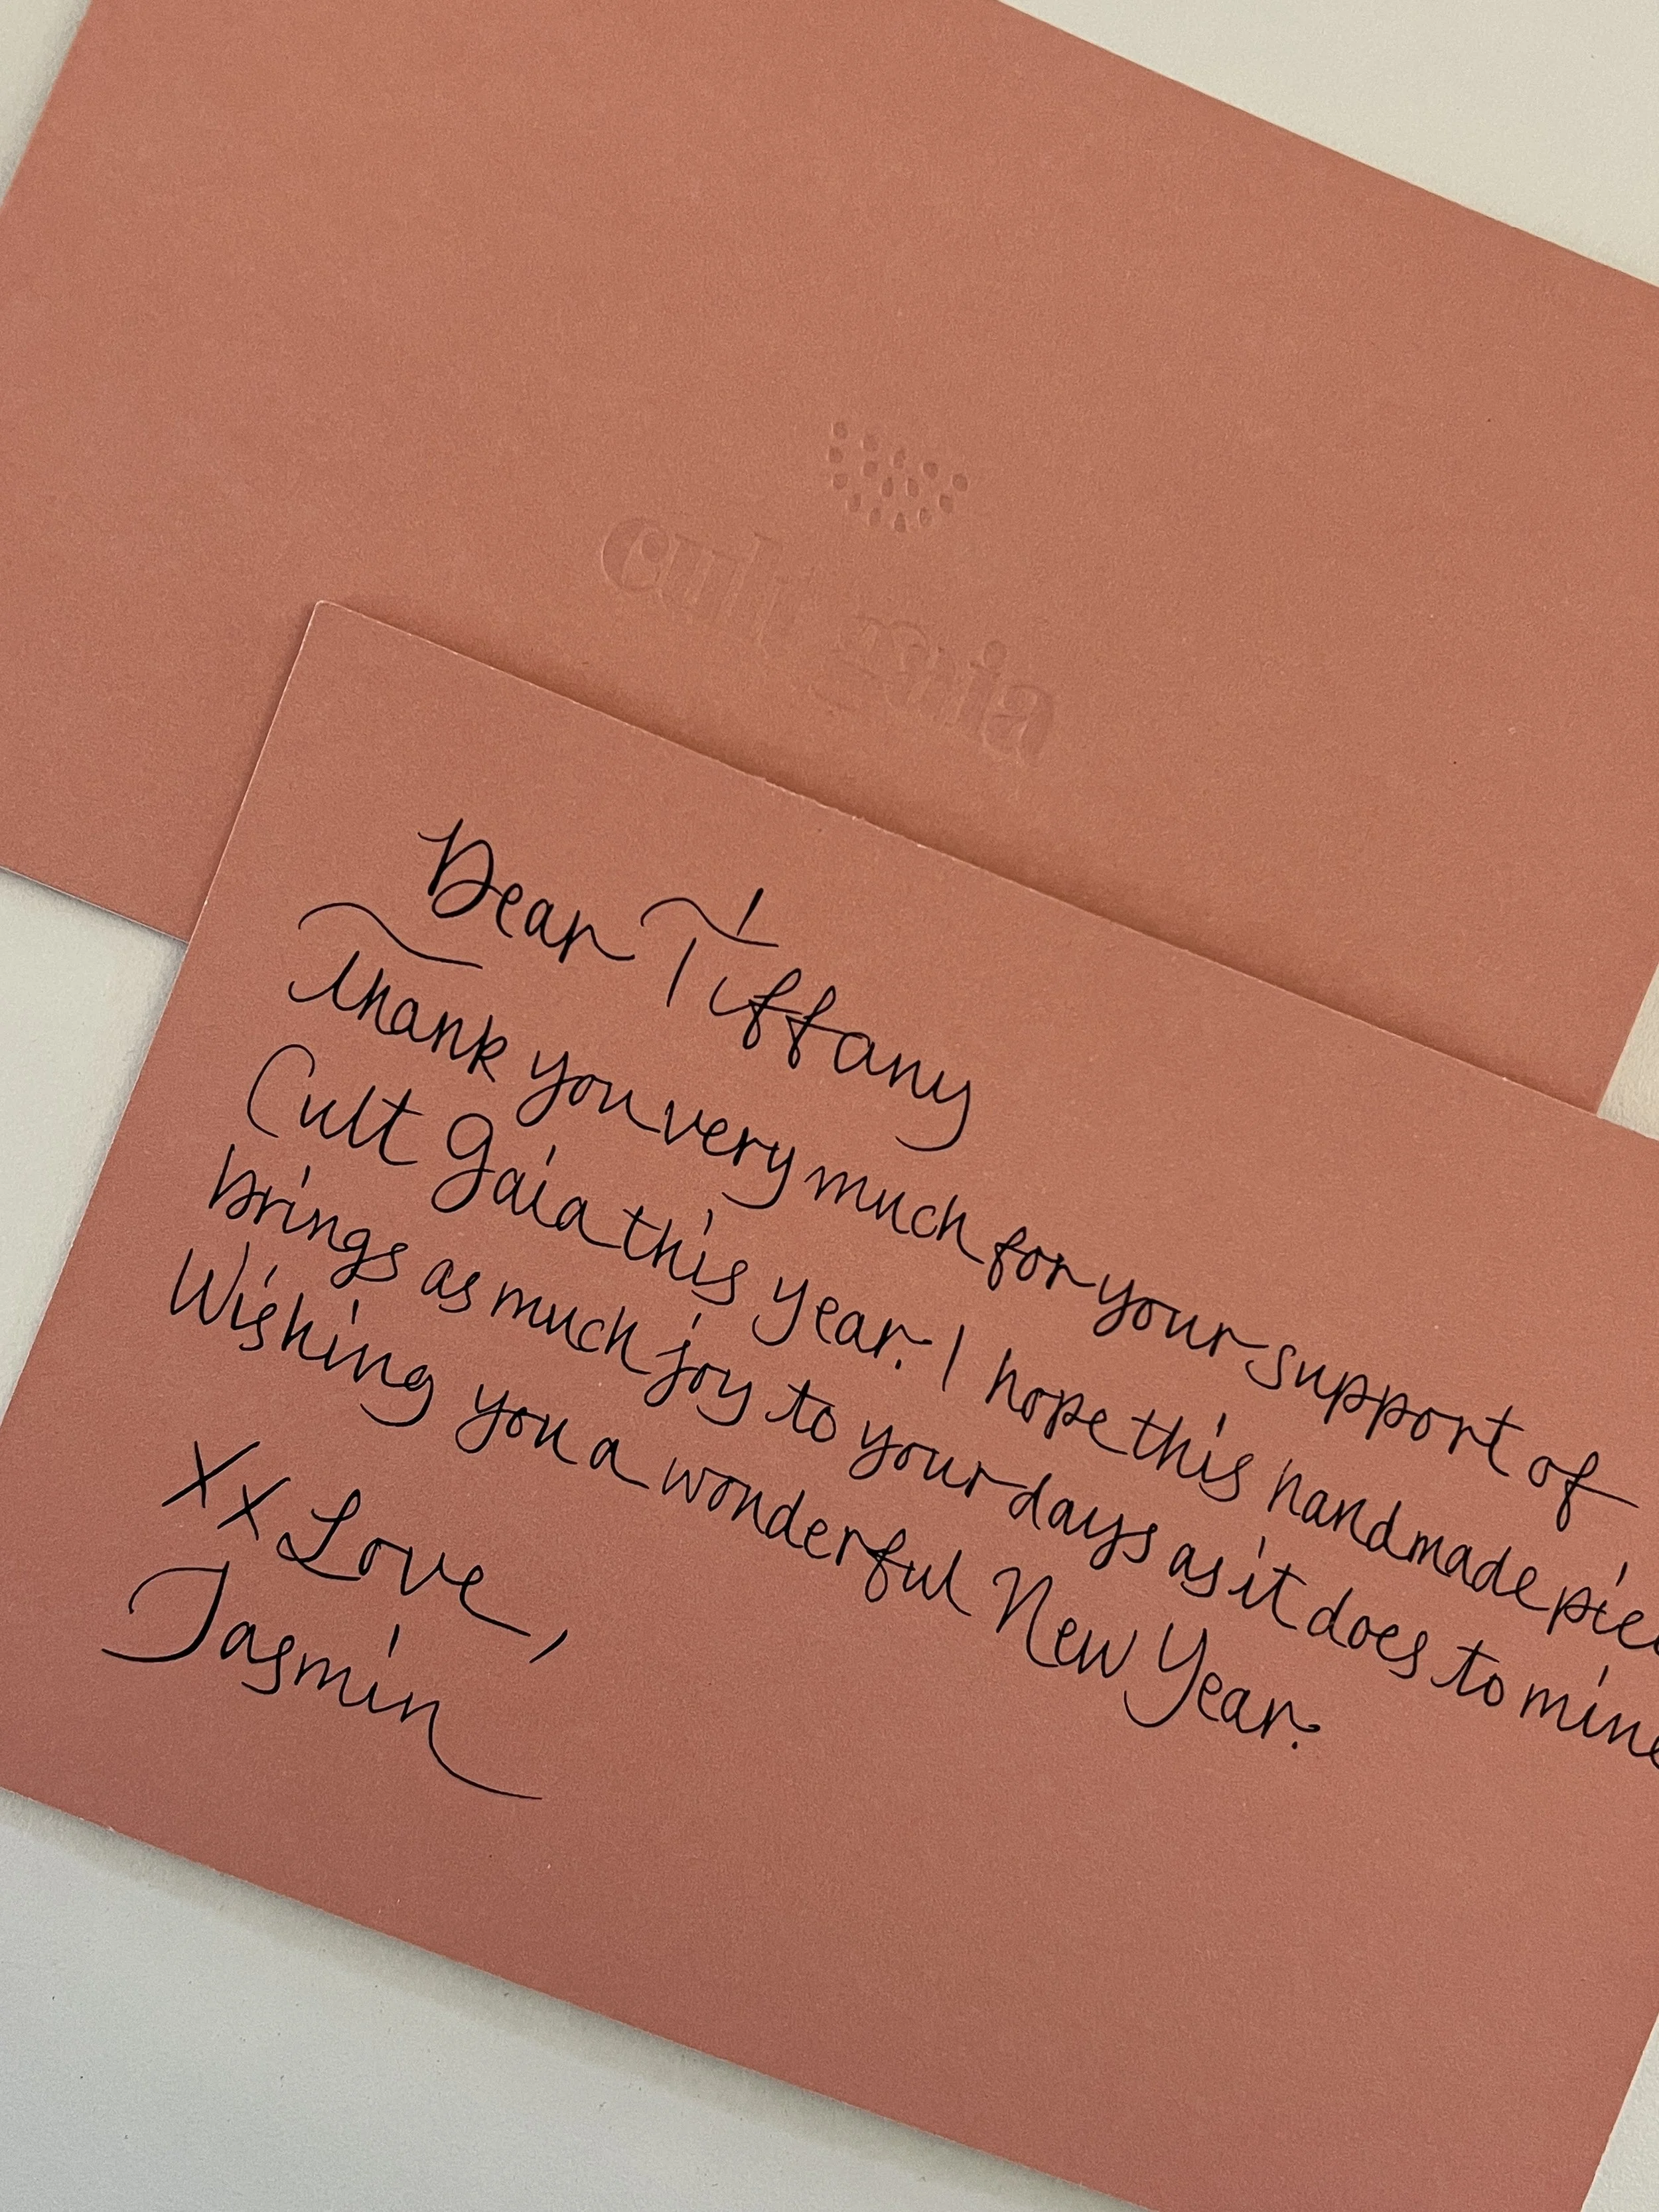 cult gaia
Dear Tiffany
Thank you very much for your support of
Cult Gaia this year. I hope this handmade piec
brings as much joy to your days as it does to mine
Wishing you a wonderful New Year.
XX Love,
Jasmin